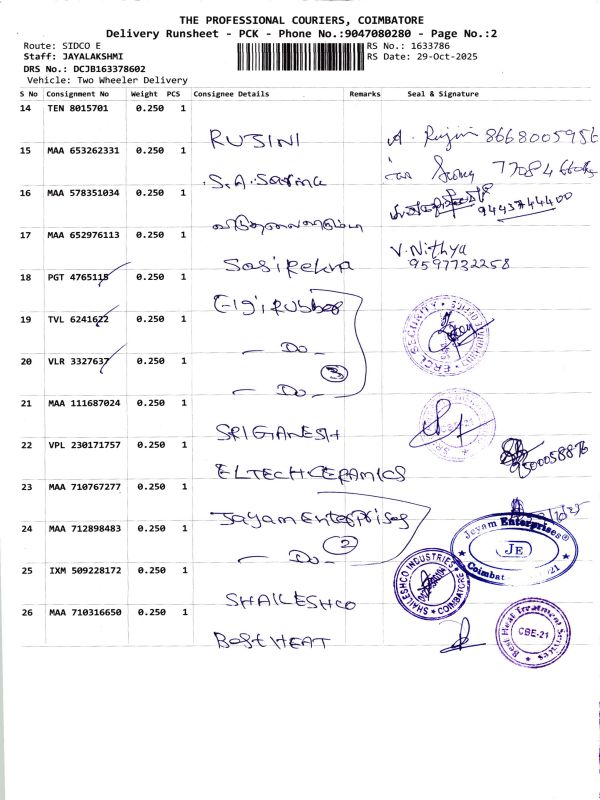 THE PROFESSIONAL COURIERS, COIMBATORE
Delivery Runsheet - PCK - Phone No.:9047080280 - Page No.:2
Route: SIDCO E
RS No.: 1633786
Staff: JAYALAKSHMI
RS Date: 29-Oct-2025
DRS No.: DCJB163378602
Vehicle: Two Wheeler Delivery
S No Consignment No Weight PCS Consignee Details Remarks Seal & Signature
14 TEN 8015701 0.250 1
RUJINI A. Rujini 8668005956
15 MAA 653262331 0.250 1
S.A. Sarina
16 MAA 578351034 0.250 1
9443744400
17 MAA 652976113 0.250 1
Sasirekha V. Nithya
9597732258
18 PGT 4765115 0.250 1
Elgi Rubber
19 TVL 6241622 0.250 1
- Do -
20 VLR 3327637 0.250 1
3
- Do -
21 MAA 111687024 0.250 1
SRI GANESH
22 VPL 230171757 0.250 1
ELTECH CERAMICS 9500058876
23 MAA 710767277 0.250 1
Jayam Enterprises
24 MAA 712898483 0.250 1
- Do - 2
Jeyam Enterprises®
JE
Coimbat 21
25 IXM 509228172 0.250 1
SHAILESHCO
SHAILESHCO INDUSTRIES
COIMBATORE
26 MAA 710316650 0.250 1
Best HEAT
Best Heat Treatment Services
CBE-21